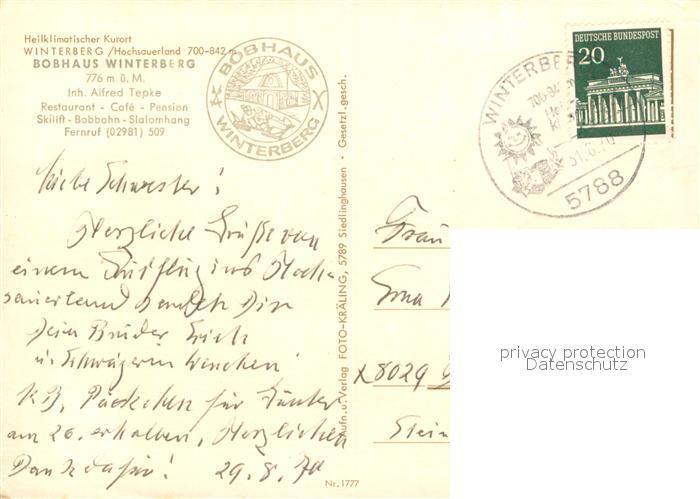 Heilklimatischer Kurort
WINTERBERG /Hochsauerland 700-842 m
BOBHAUS WINTERBERG
776 m ü. M.
Inh. Alfred Tepke
Restaurant - Café - Pension
Skilift - Bobbahn - Slalomhang
Fernruf (02981) 509
BOBHAUS
WINTERBERG
DEUTSCHE BUNDESPOST
20
WINTERBERG
5788
Liebe Schwester!
Herzliche Grüße von
einem Ausflug ins Hoch-
sauerland senden Dir
Dein Bruder Erich
u. Schwägerin Lenchen
Päckchen für
am 20. erhalten, Herzlichen
Dank dafür! 29.8.70
Aufn. u. Verlag FOTO-KRÄLING, 5789 Siedlinghausen · Gesetzl. gesch.
Nr. 1777
Frau
Erna
8029
Stein
privacy protection
Datenschutz